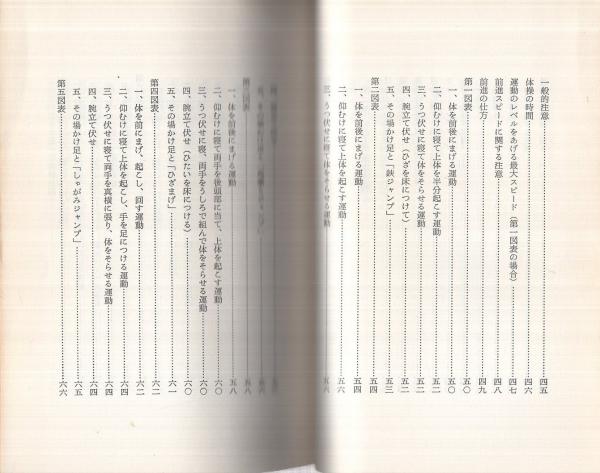 一般的注意……四五
体操の時間……四六
運動のレベルをあげる最大スピード（第一図表の場合）……四七
前進スピードに関する注意……四八
前進の仕方……四九
第一図表……五〇
一、体を前後にまげる運動……五〇
二、仰むけに寝て上体を半分起こす運動……五二
三、うつ伏せに寝て体をそらせる運動……五二
四、腕立て伏せ（ひざを床につけて）……五二
五、その場かけ足と「鋏ジャンプ」……五三
第二図表……五四
一、体を前後にまげる運動……五四
二、仰むけに寝て上体を起こす運動……五六
三、うつ伏せに寝て体をそらせる運動……五六
一、体を前後にまげる運動……五八
二、仰むけに寝て両手を後頭部に当て、上体を起こす運動……六〇
三、うつ伏せに寝、両手をうしろで組んで体をそらせる運動……六〇
四、腕立て伏せ（ひたいを床につける）……六〇
五、その場かけ足と「ひざまげ」……六一
第四図表……六二
一、体を前にまげ、起こし、回す運動……六二
二、仰むけに寝て上体を起こし、手を足につける運動……六四
三、うつ伏せに寝て両手を真横に張り、体をそらせる運動……六四
四、腕立て伏せ……六四
五、その場かけ足と「しゃがみジャンプ」……六五
第五図表……六六